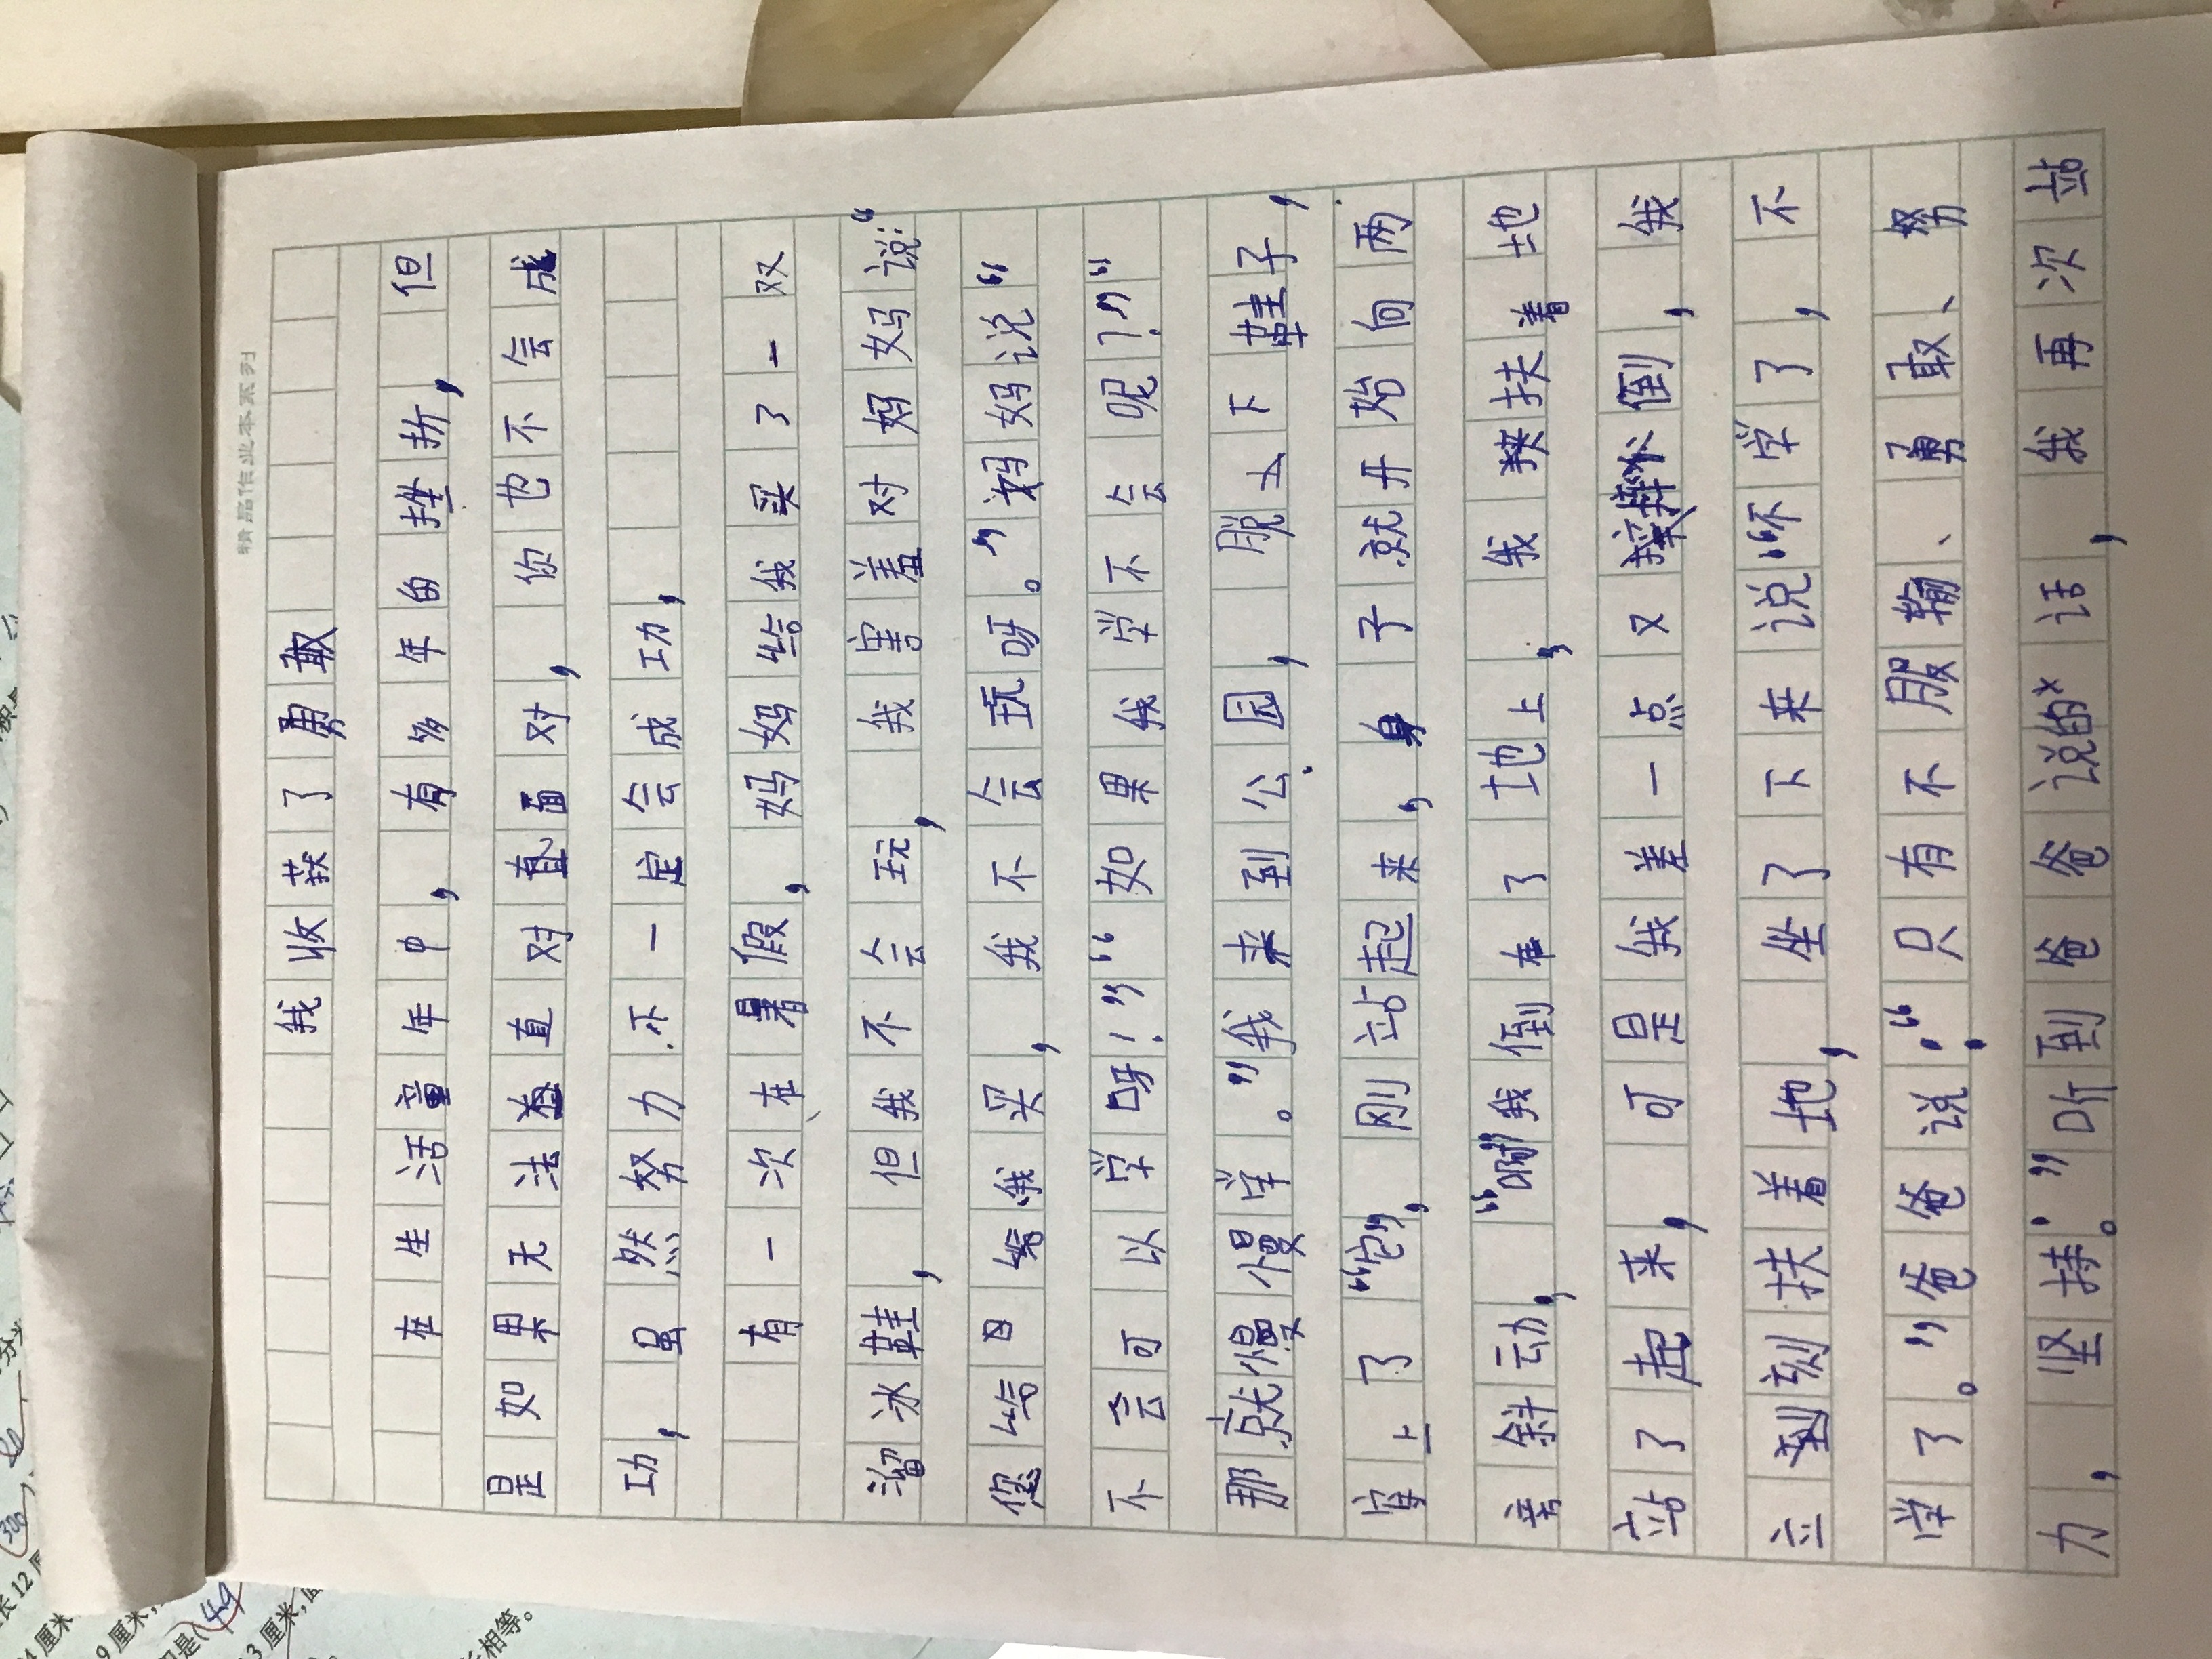 精品作业本系列
我收获了勇敢
在生活童年中，有多年的挫折，但
是如果无法直对直面对，你也不会成
功，虽然努力不一定会成功，
有一次在暑假，妈妈给我买了一双
溜冰鞋，但我不会玩，我害羞对妈妈说：“
您给我买，我不会玩呀。”妈妈说“
不会可以学呀！”“如果我学不会呢？”“
那就慢慢学。”我来到公园，脱上下鞋子，
穿上了“它”，刚站起来，身子就开始向两
旁斜动，“啊”我倒在了地上，我扶着地
站了起来，可是我差一点又倒，我
立刻扶着地，坐了下来说“不学了，不
学了。”爸爸说：“只有不服输、勇敢、努
力，坚持。”听到爸爸说的话，我再次站
厘米
长12厘
9厘米，
(49
3厘米，
相等。